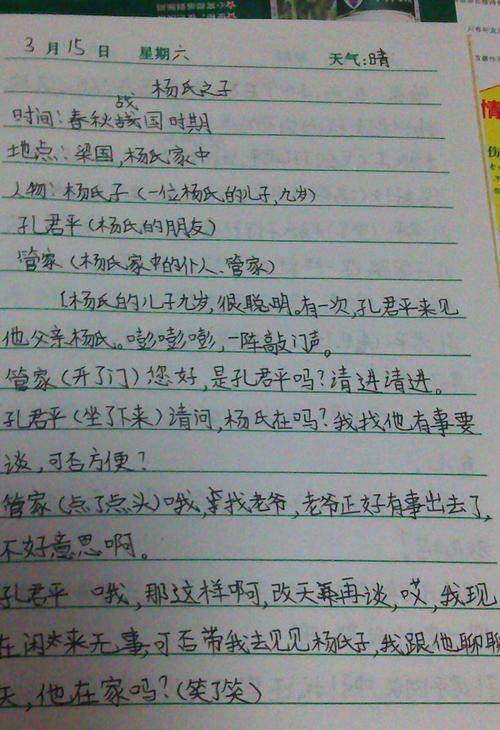 3月15日 星期六 天气:晴
杨氏之子
时间:春秋战国时期
地点:梁国,杨氏家中
人物:杨氏子(一位杨氏的儿子,九岁)
孔君平(杨氏的朋友)
管家(杨氏家中的仆人、管家)
[杨氏的儿子九岁,很聪明。有一次,孔君平来见
他父亲杨氏。嘭嘭嘭,一阵敲门声。
管家(开了门)您好,是孔君平吗?请进请进。
孔君平(坐了下来)请问,杨氏在吗?我找他有事要
谈,可否方便?
管家(点了点头)哦,找老爷,老爷正好有事出去了,
不好意思啊。
孔君平 哦,那这样啊,改天再谈,哎,我现
在闲来无事,可否带我去见见杨氏子,我跟他聊聊
天,他在家吗?(笑了笑)